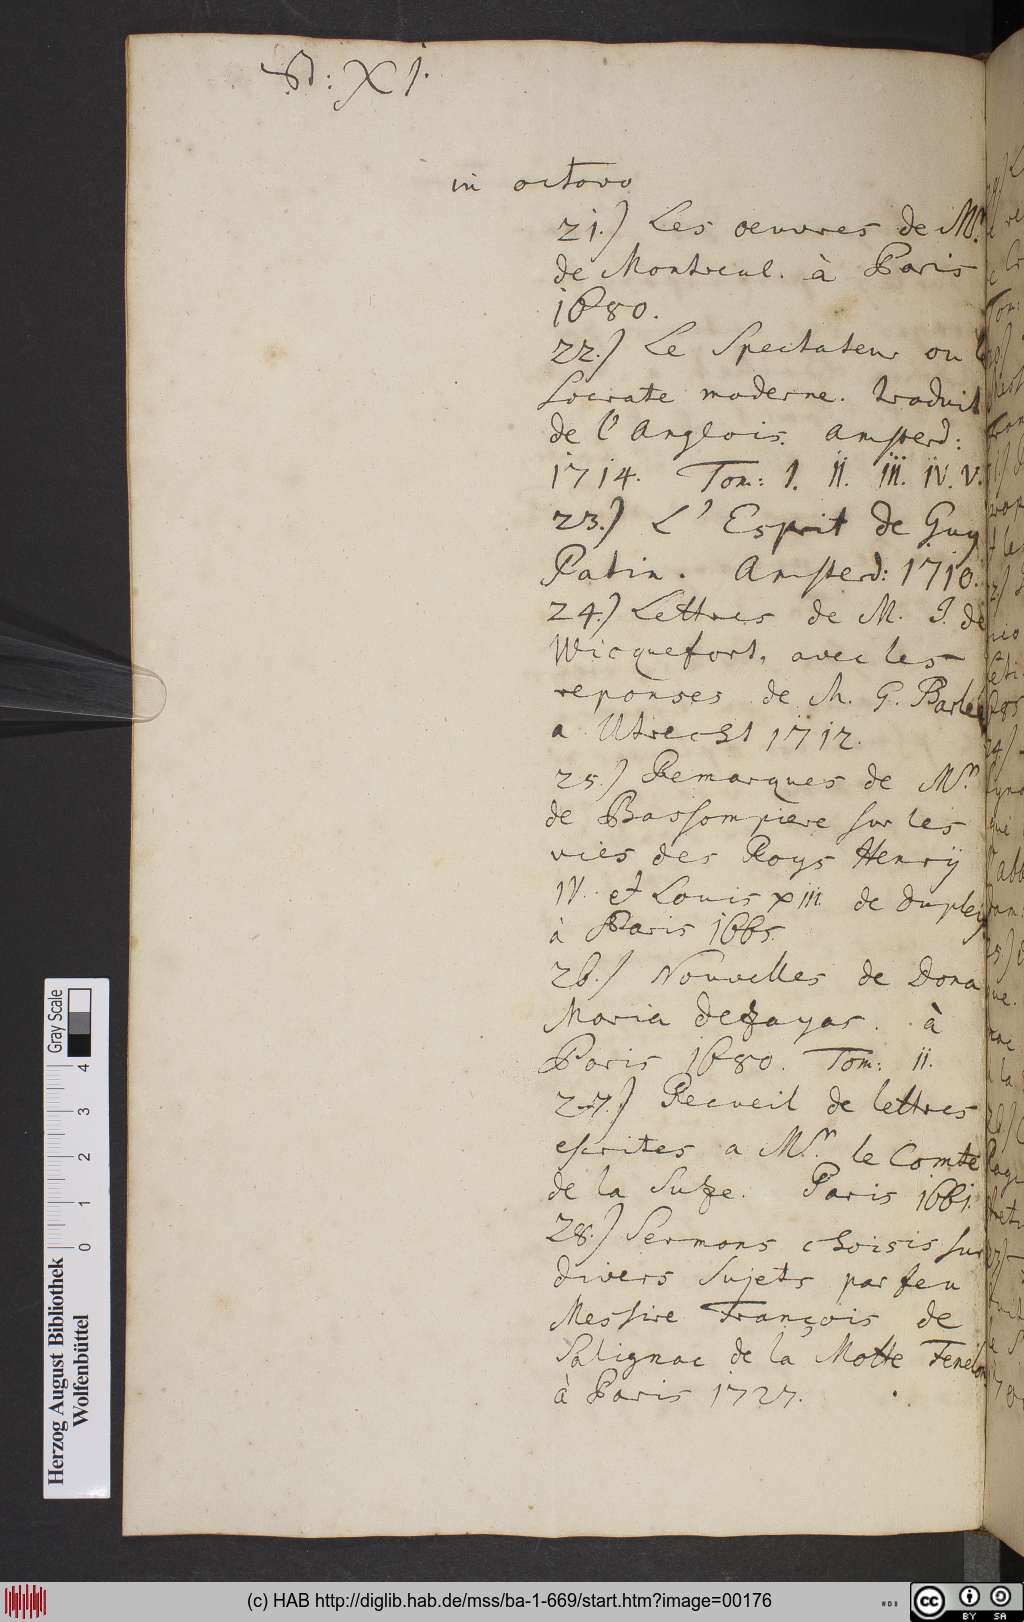 St: XI.
in octavo
21.) Les oeuvres de Mr.
de Montreul. à Paris
1680.
22.) Le Spectateur ou le
Socrate moderne. traduit
de l'Anglois. Amsterd:
1714. Tom: I. II. III. IV. V.
23.) L'Esprit de Guy
Patin. Amsterd: 1710.
24.) Lettres de M. J. de
Wicquefort, avec les
reponses de M. G. Barlée
a Utrecht 1712.
25.) Remarques de Mr.
de Bassompiere sur les
vies des Roys Henrÿ
IV. et Louis XIII. de Dupleix
à Paris 1665.
26.) Nouvelles de Dona
Maria Dezayas. à
Paris 1680. Tom: II.
27.) Recueil de lettres
escrites a Mr. le Comte
de la Suze. Paris 1661.
28.) Sermons choisis sur
divers Sujets par feu
Messire François de
Salignac de la Motte Fenelon
à Paris 1727.
Herzog August Bibliothek
Wolfenbüttel
Gray Scale
0 1 2 3 4
(c) HAB http://diglib.hab.de/mss/ba-1-669/start.htm?image=00176
WDB
cc BY SA